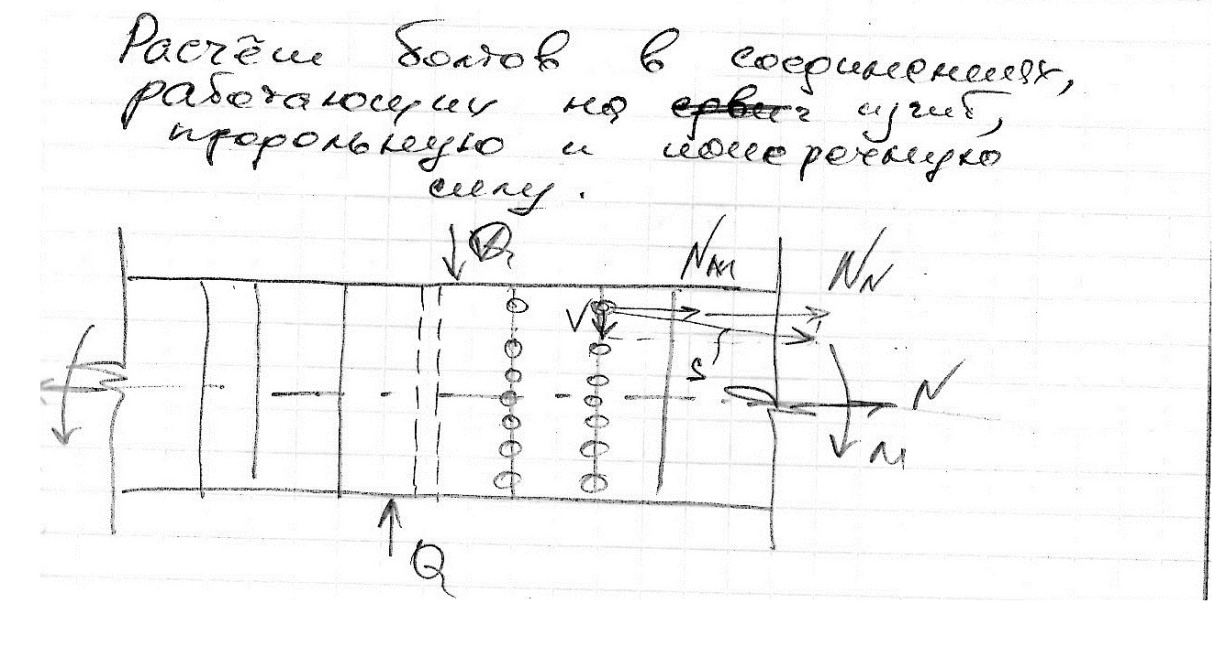 Расчёт болтов в соединениях,
работающих на изгиб,
продольную и поперечную
силу.
Q
N_M
N_N
V
S
N
M
Q